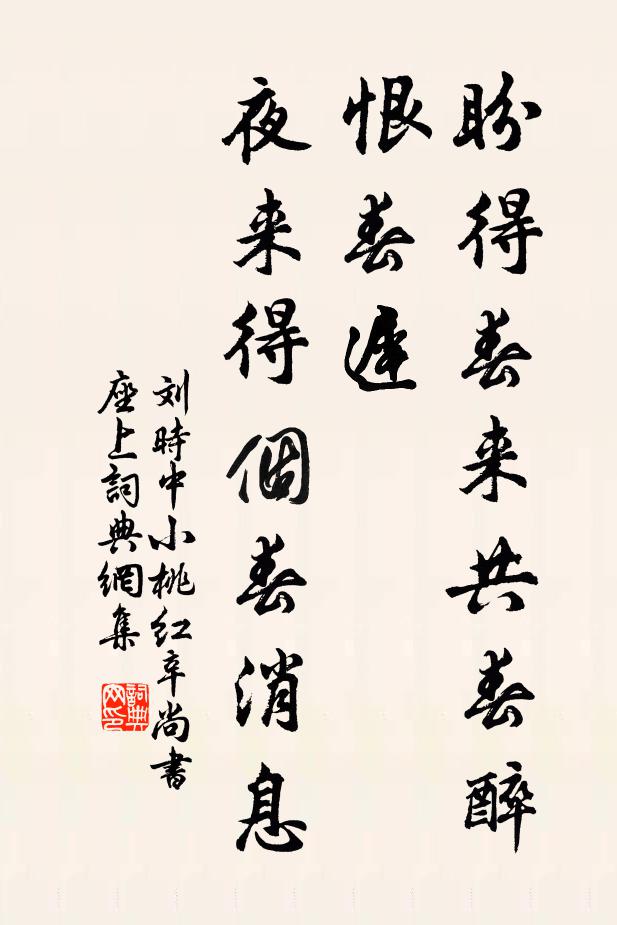 盼得春来共春醉
恨春遲
夜来得個春消息
刘時中小桃红辛尚書
座上詞典網集
詞典网印